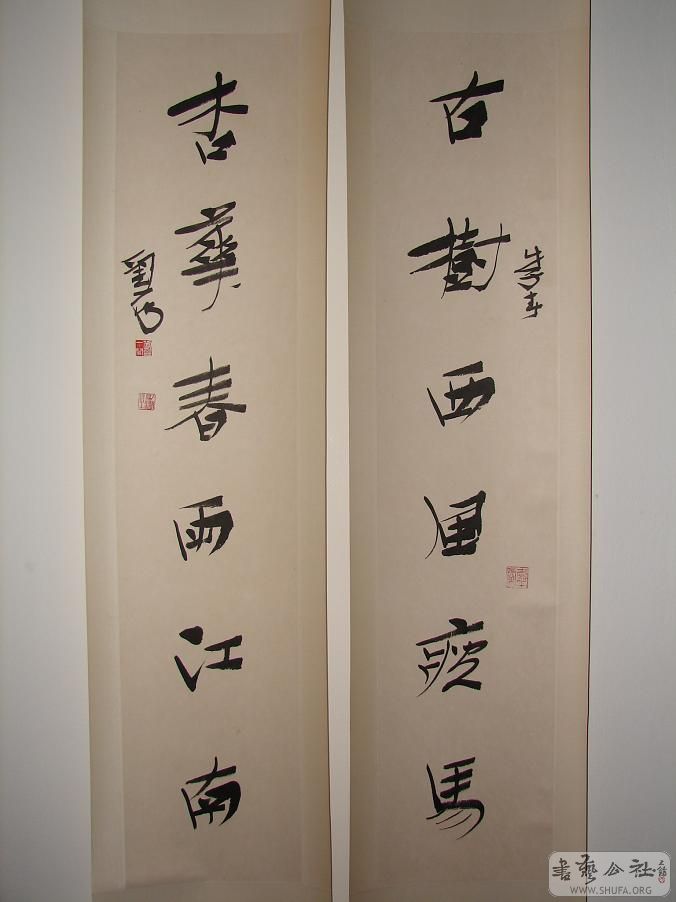 古樹西風瘦馬
杏華春雨江南
書藝公社
WWW.SHUFA.ORG